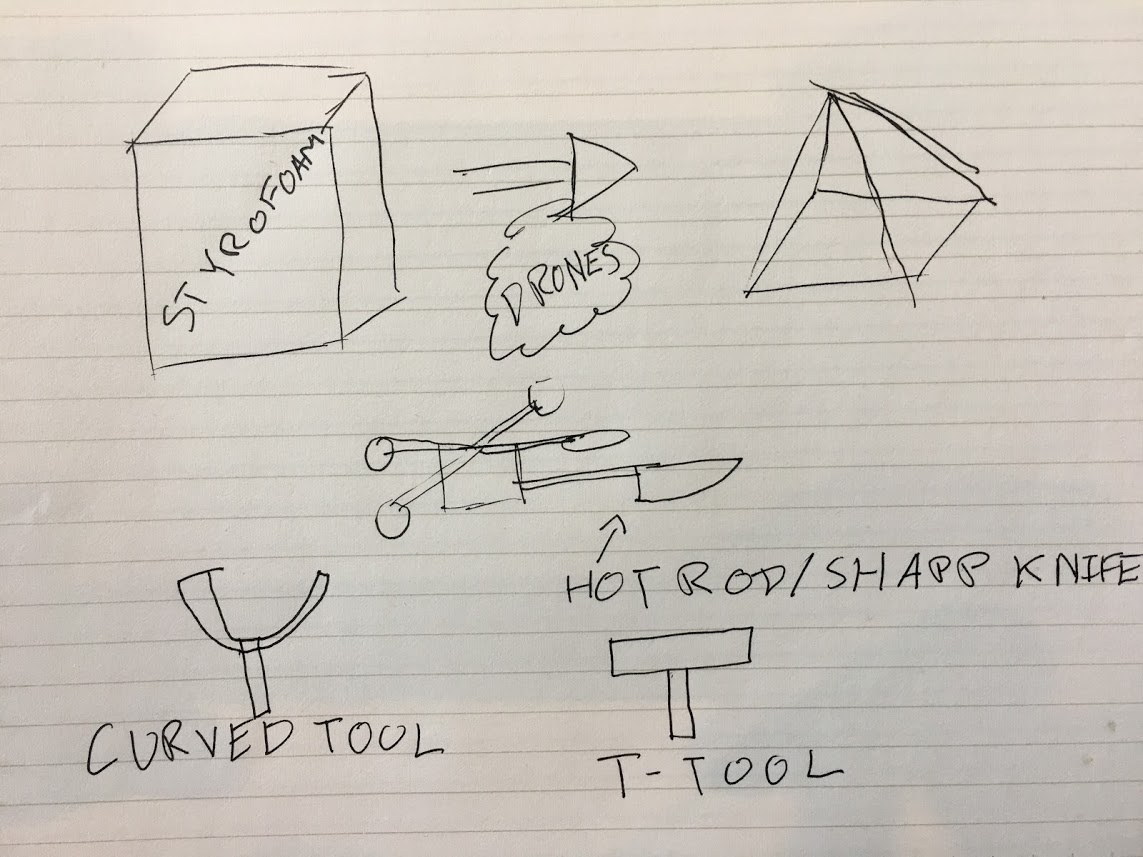 STYROFOAM
DRONES
HOT ROD/SHAPP KNIFE
CURVED TOOL
T-TOOL